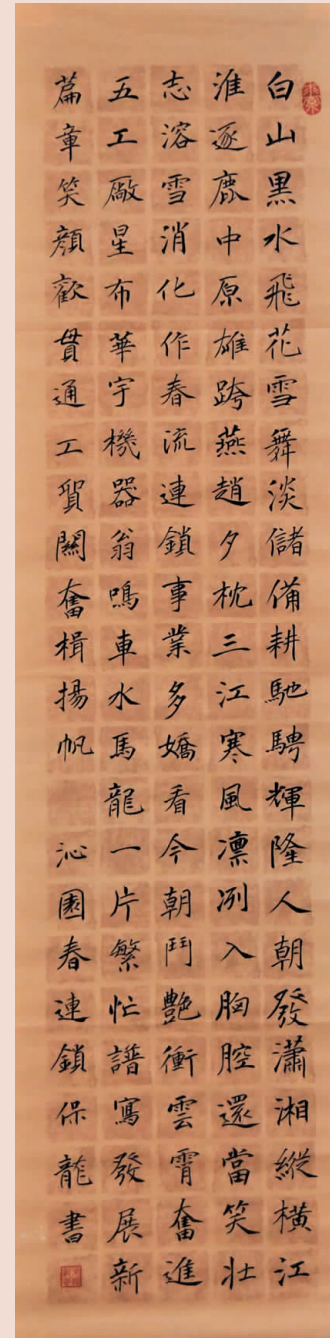 白山黑水飛花雪舞淡儲備耕馳騁輝隆人朝發瀟湘縱橫江
淮逐鹿中原雄跨燕趙夕枕三江寒風凛冽入胸腔還當笑壯
志溶雪消化作春流連鎖事業多嬌看今朝鬥艷衝雲霄奮進
五工廠星布華宇機器翁鳴車水馬龍一片繁忙譜寫發展新
篇章笑顏歡貫通工貿奮楫揚帆 沁園春連鎖保龍書